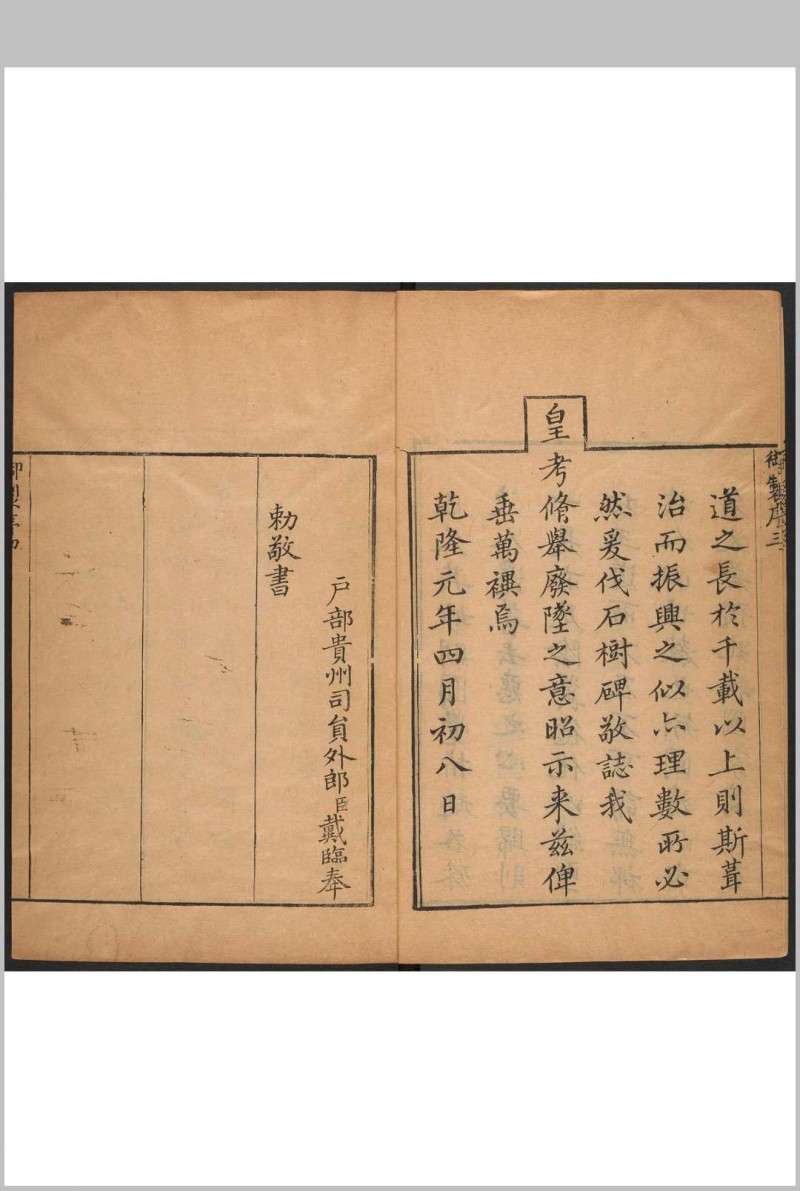 御製序 三
道之長於千載以上則斯葺
治而振興之似亦理數所必
然爰伐石樹碑敬誌我
皇考脩舉廢墜之意昭示来兹俾
垂萬禩焉
乾隆元年四月初八日
户部貴州司員外郎臣戴臨奉
勅敬書